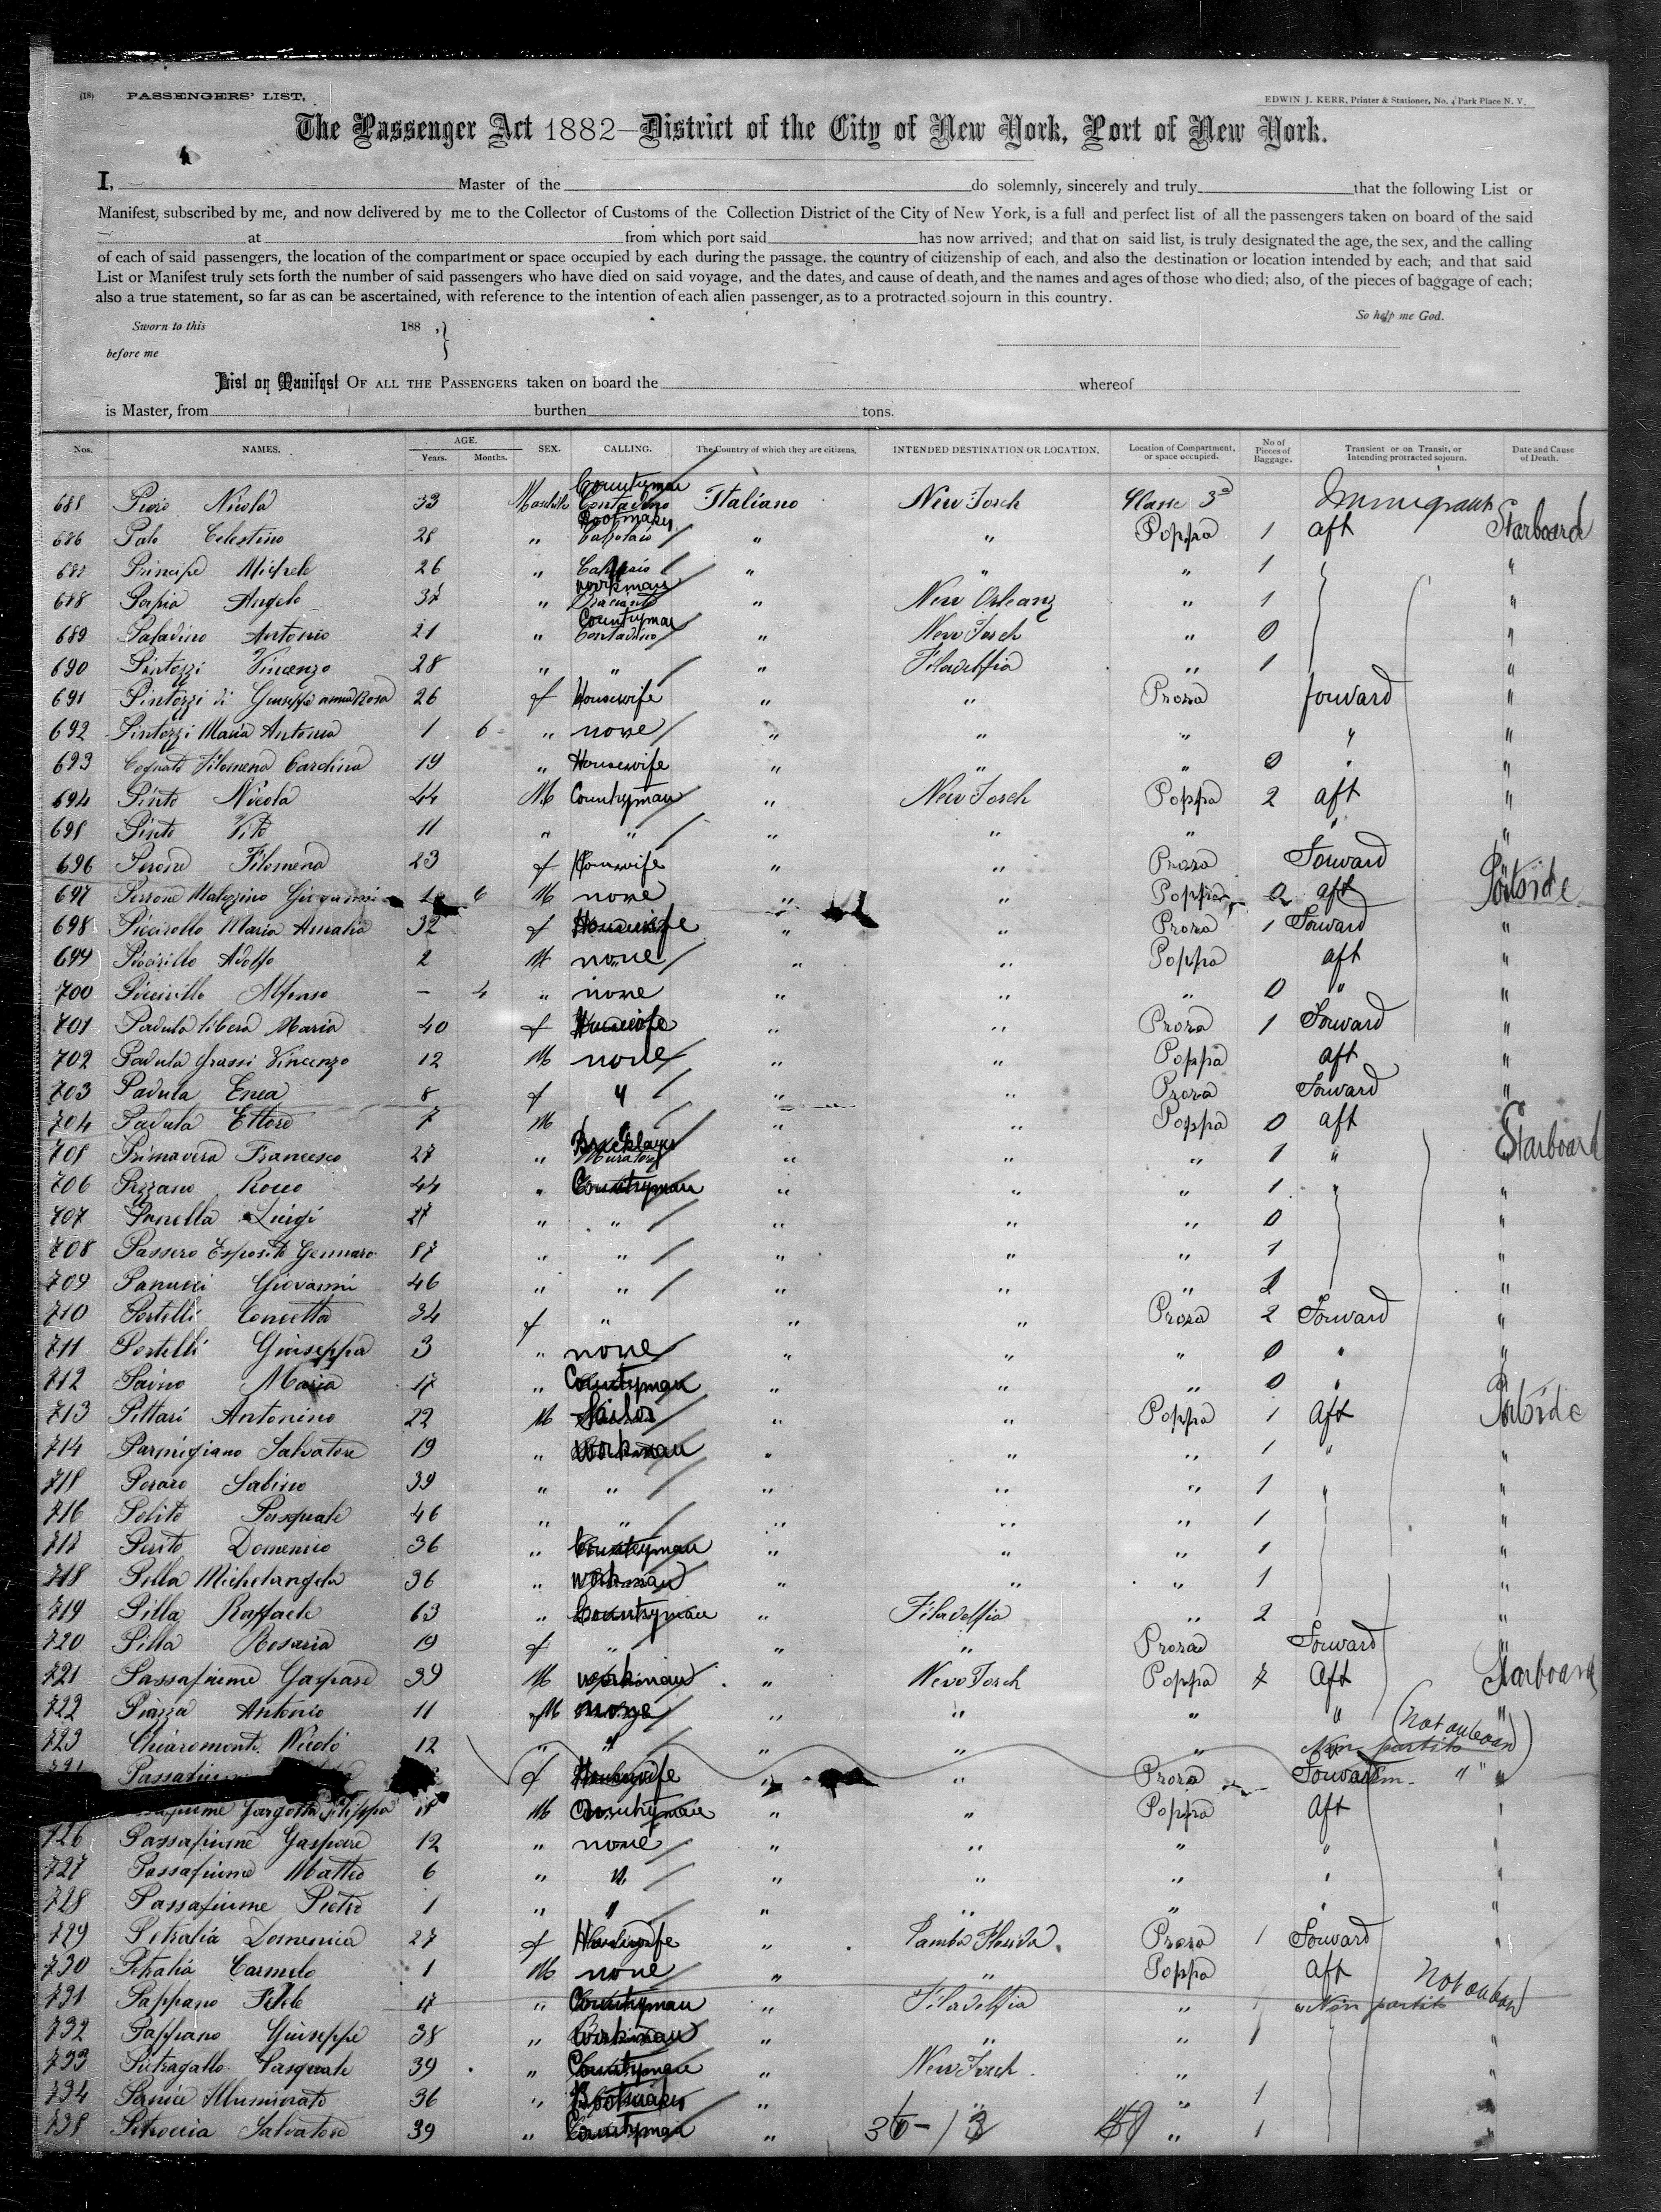 (18) PASSENGERS' LIST.
EDWIN J. KERR, Printer & Stationer, No. 4 Park Place N. Y.
The Passenger Act 1882—District of the City of New York, Port of New York.
I, Master of the do solemnly, sincerely and truly that the following List or
Manifest, subscribed by me, and now delivered by me to the Collector of Customs of the Collection District of the City of New York, is a full and perfect list of all the passengers taken on board of the said
at from which port said has now arrived; and that on said list, is truly designated the age, the sex, and the calling
of each of said passengers, the location of the compartment or space occupied by each during the passage, the country of citizenship of each, and also the destination or location intended by each; and that said
List or Manifest truly sets forth the number of said passengers who have died on said voyage, and the dates, and cause of death, and the names and ages of those who died; also, of the pieces of baggage of each;
also a true statement, so far as can be ascertained, with reference to the intention of each alien passenger, as to a protracted sojourn in this country.
Sworn to this 188 , } So help me God.
before me
List or Manifest OF ALL THE PASSENGERS taken on board the whereof
is Master, from burthen tons.
Nos. NAMES. AGE. Years. Months. SEX. CALLING. The Country of which they are citizens. INTENDED DESTINATION OR LOCATION. Location of Compartment, or space occupied. No of Pieces of Baggage. Transient or on Transit, or Intending protracted sojourn. Date and Cause of Death.
Nicola 33 Maschile Countryman Contadino Italiano New Jorch Classe 3a Immigrants
686 Palo Celestino 28 " Bootmaker Calzolaio " " Poppa 1 aft Starboard
Principe Michele 26 " " " " 1 "
688 Angelo 37 " workman Bracciante " New Orleans " 1 "
689 Paladino Antonio 21 " Countryman Contadino " New Jorch " 0 "
690 Pintozzi Vincenzo 28 " " " Filadelfia " 1 "
691 Pintozzi di Giuseppe anna Rosa 26 f Housewife " " Prora forward "
692 Pintozzi Maria Antonia 1 6 " none " " " " "
693 Cognato Filomena Carolina 19 " Housewife " " " 0 " "
694 Pinto Nicola 44 M Countryman " New Jorch Poppa 2 aft "
695 Pinto Vito 11 " " " " " " "
696 Perone Filomena 23 f Housewife " " Prora Forward "
697 Perrone 6 M none " " Poppa 0 aft Portside
698 Piccirollo Maria Amalia 32 f Housewife " " Prora 1 Forward "
699 Piccirillo Adolfo 2 M none " " Poppa aft "
700 Piccirillo Alfonso - 4 " none " " " 0 " "
701 Padula libera Maria 40 f Housewife " " Prora 1 Forward "
702 Padula Grassi Vincenzo 12 M none " " Poppa aft "
703 Padula Enea 8 f " " " Prora Forward "
704 Padula Ettore 7 M " " " Poppa 0 aft
705 Primavera Francesco 27 " Bricklayer Muratore " " " 1 " Starboard
706 Pizzano Rocco 44 " Countryman " " " 1 " "
707 Panella Luigi 27 " " " " " 0 "
708 Passero Esposito Gennaro " " " " " 1 "
709 Panucci Giovanni 46 " " " " " "
710 Portelli Concetta 34 f " " " Prora 2 Forward "
711 Portelli Giuseppa 3 " none " " " 0 " "
712 Maria 17 " Countryman " " " 0 "
713 Pittari Antonino 22 M Sailor " " Poppa 1 Aft Portside
714 Parmigiano Salvatore 19 " workman " " " 1 " "
715 Sabino 39 " " " " " 1 " "
716 Polito Pasquale 46 " " " " " 1 "
717 Perito Domenico 36 " Countryman " " " 1 "
718 Pilla Michelangelo 36 " workman " " " 1 "
719 Pilla Raffaele 63 " Countryman " Filadelfia " 2 "
720 Pilla Rosaria 19 f " " " Prora Forward "
721 Passafiume Gaspare 39 M workman " New Jorch Poppa 7 Aft Starboard
722 Piazza Antonio 11 M none " " " " "
723 Chiaromonte Nicolò 12 " " " " " Non partito (Not on board)
f Housewife " " Prora Forward " "
Gargotta Filippo M Countryman " " Poppa Aft
726 Passafiume Gaspare 12 " none " " "
727 Passafiume Matteo 6 " " " " " "
728 Passafiume Pietro 1 " " " " " "
729 Petralia Domenica 27 f Housewife " Tamba Florida Prora 1 Forward
730 Petralia Carmelo 1 M none " " Poppa Aft
731 Pappano 17 " Countryman " Filadelfia " Non partito Not on board
732 Pappano Giuseppe 38 " workman " " " 1
733 Pietragallo Pasquale 39 " Countryman " New Jorch "
734 Illuminato 36 " Bootmaker " " " 1
735 Petroccia Salvatore 39 " Countryman " " 1